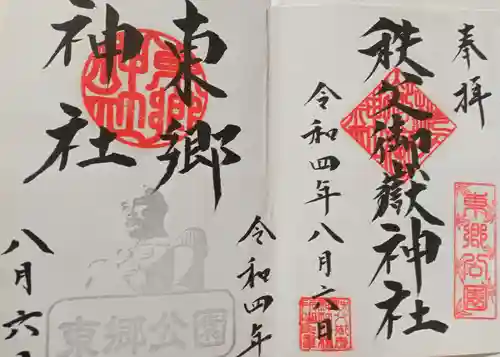 奉拝
秩父御嶽神社
令和四年八月六日
東郷公園
東郷
神社
令和四年
八月六日
東郷公園